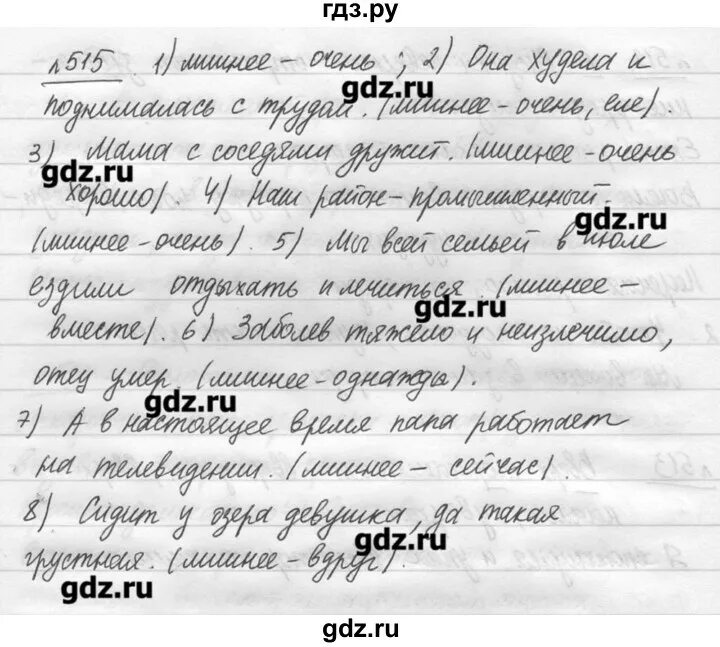 гдз.ру
№515 1) лишнее – очень; 2) Она худела и
gdz.ru
поднималась с трудом. (лишнее – очень, еле).
3) Мама с соседями дружит. (лишнее – очень
gdz.ru
хорошо). 4) Наш район – промышленный.
gdz.ru
(лишнее – очень). 5) Мы всей семьей в июле
ездили отдыхать и лечиться. (лишнее –
gdz.ru
вместе). 6) Заболев тяжело и неизлечимо,
отец умер. (лишнее – однажды).
gdz.ru
7) А в настоящее время папа работает
на телевидении. (лишнее – сейчас).
8) Сидит у озера девушка, да такая
gdz.ru
грустная. (лишнее – вдруг).
gdz.ru
gdz.ru